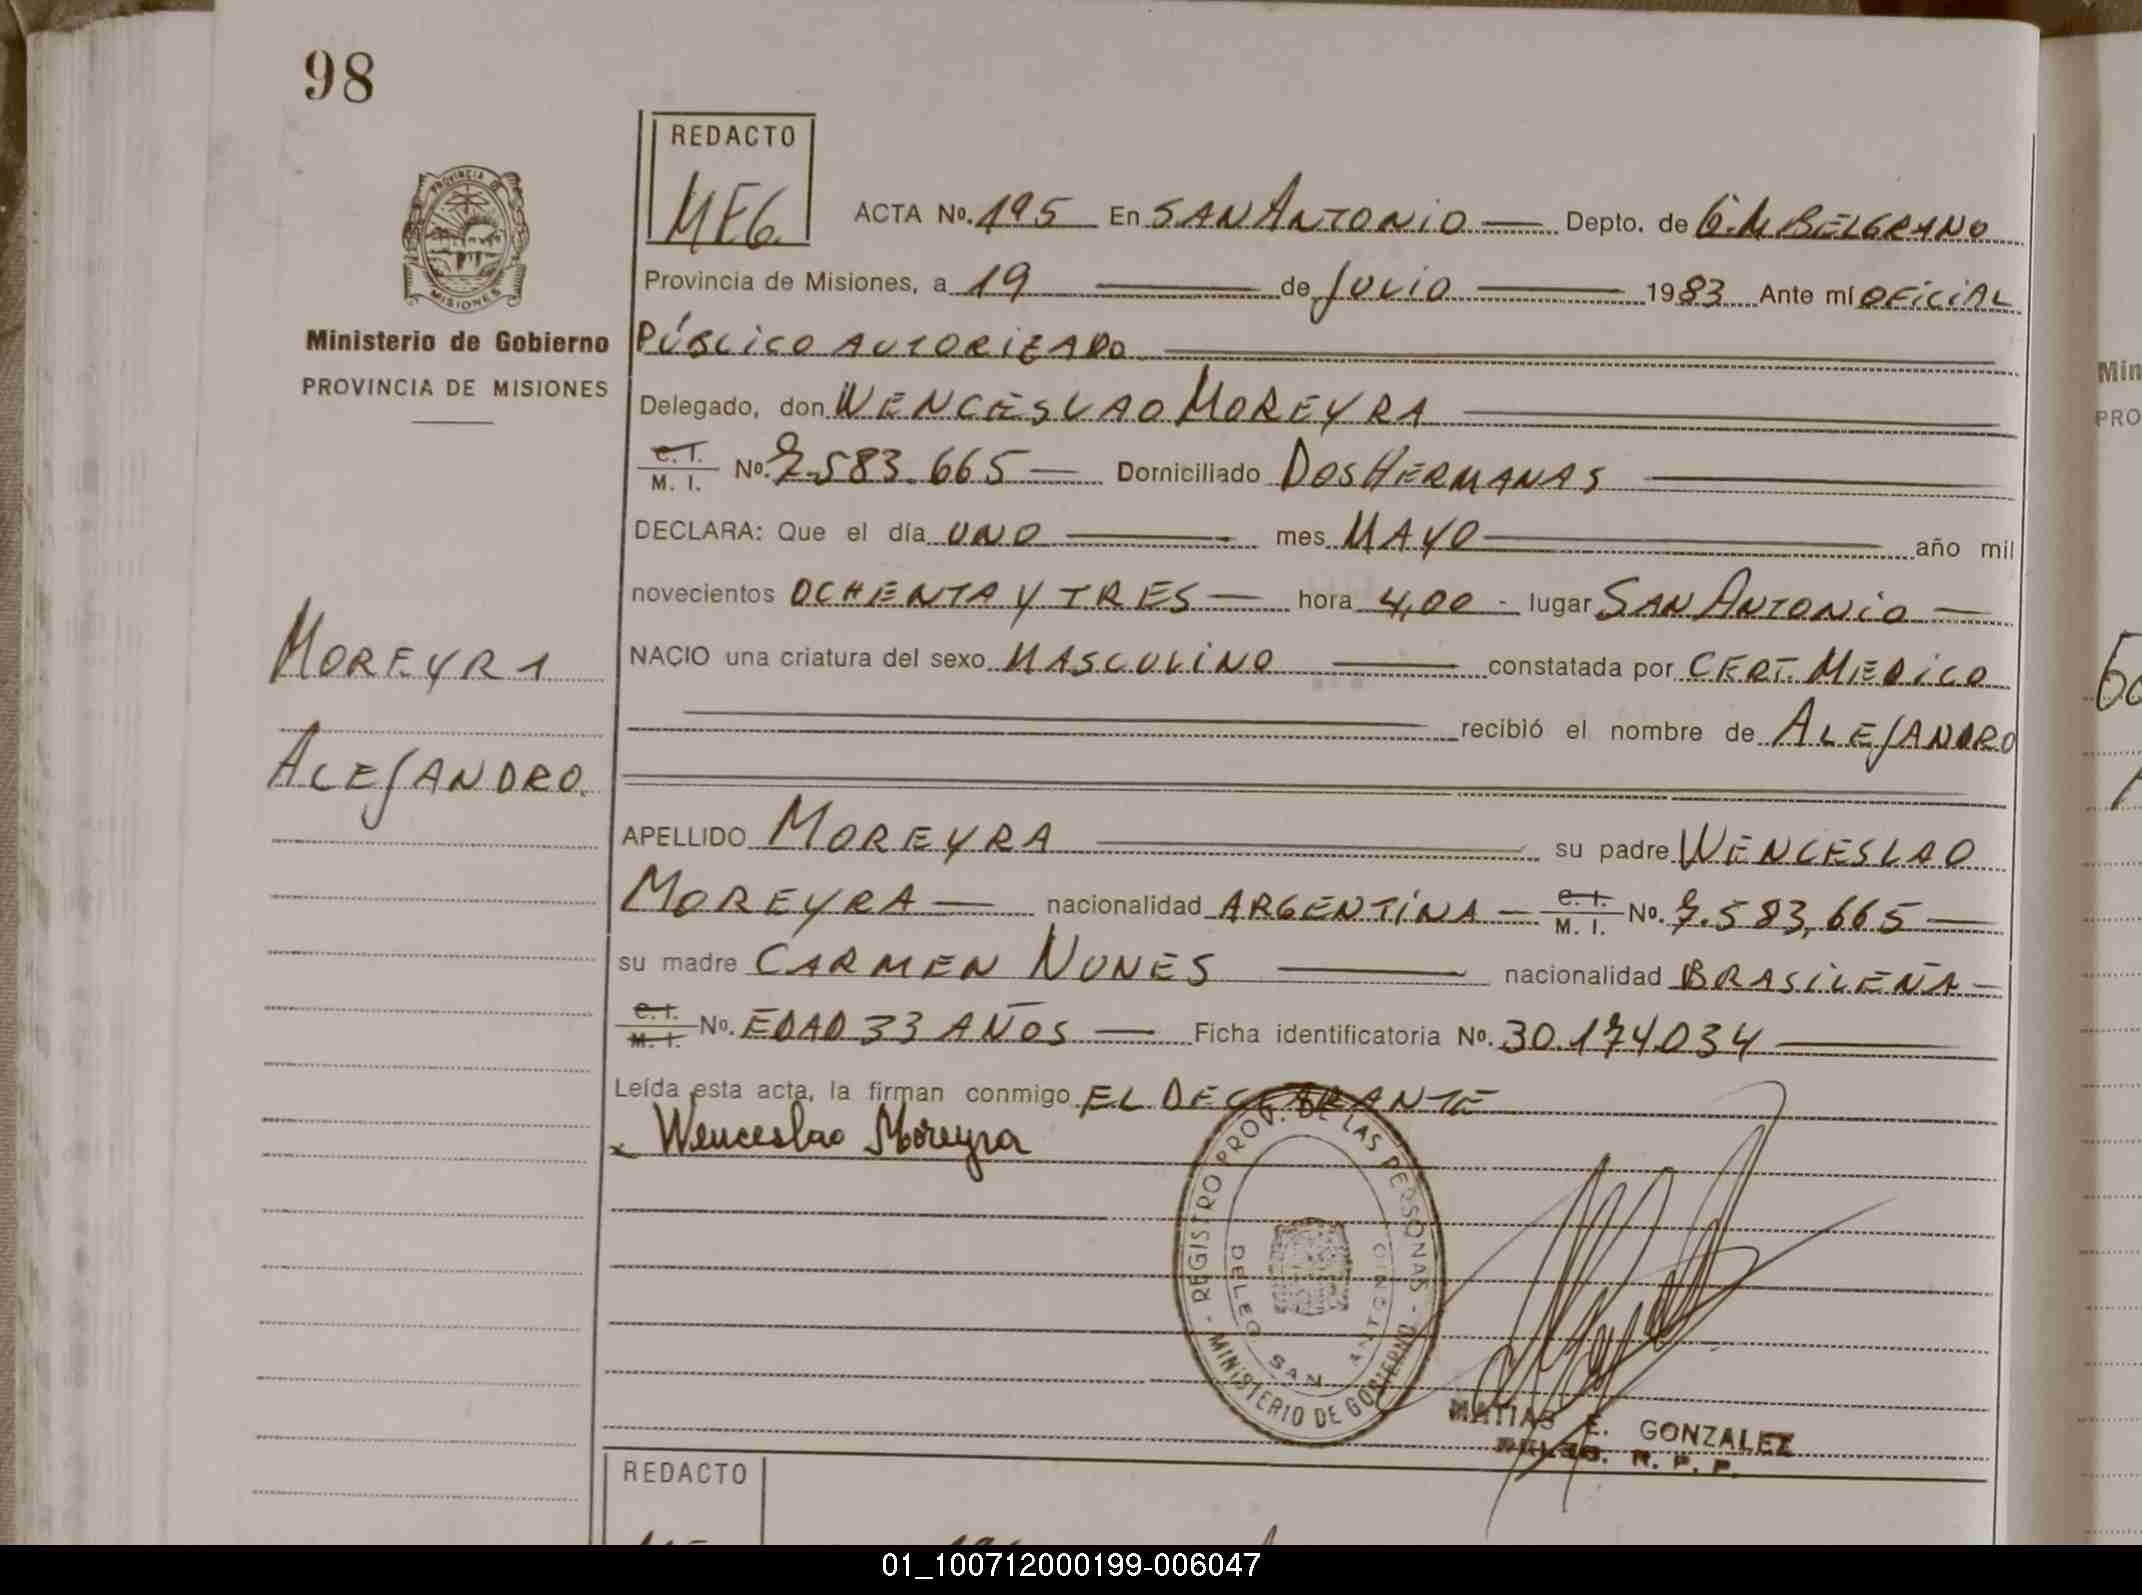 98
REDACTO
MEG.
ACTA No. 195 En SAN ANTONIO Depto. de G.M. BELGRANO
PROVINCIA DE
MISIONES
Provincia de Misiones, a 19 de JULIO 1983 Ante mí OFICIAL
Ministerio de Gobierno
PÚBLICO AUTORIZADO
PROVINCIA DE MISIONES
Delegado, don WENCESLAO MOREYRA
C. I.
M. I. No. 7.583.665 Domiciliado DOS HERMANAS
DECLARA: Que el día UNO mes MAYO año mil
novecientos OCHENTA Y TRES hora 4,00 - lugar SAN ANTONIO
MOREYRA
NACIO una criatura del sexo MASCULINO constatada por CERT. MEDICO
recibió el nombre de ALEJANDRO
ALEJANDRO.
APELLIDO MOREYRA su padre WENCESLAO
MOREYRA nacionalidad ARGENTINA C. I. M. I. No. 7.583,665
su madre CARMEN NUNES nacionalidad BRASILEÑA
C. I. M. I. No. EDAD 33 AÑOS Ficha identificatoria No. 30.174.034
Leída esta acta, la firman conmigo EL DECLARANTE
x Wenceslao Moreyra
- REGISTRO PROV. DE LAS PERSONAS - MINISTERIO DE GOBIERNO
DELEG. SAN ANTONIO
MATIAS E. GONZALEZ
DELEG. R. P. P.
REDACTO
Min
PRO
01_100712000199-006047